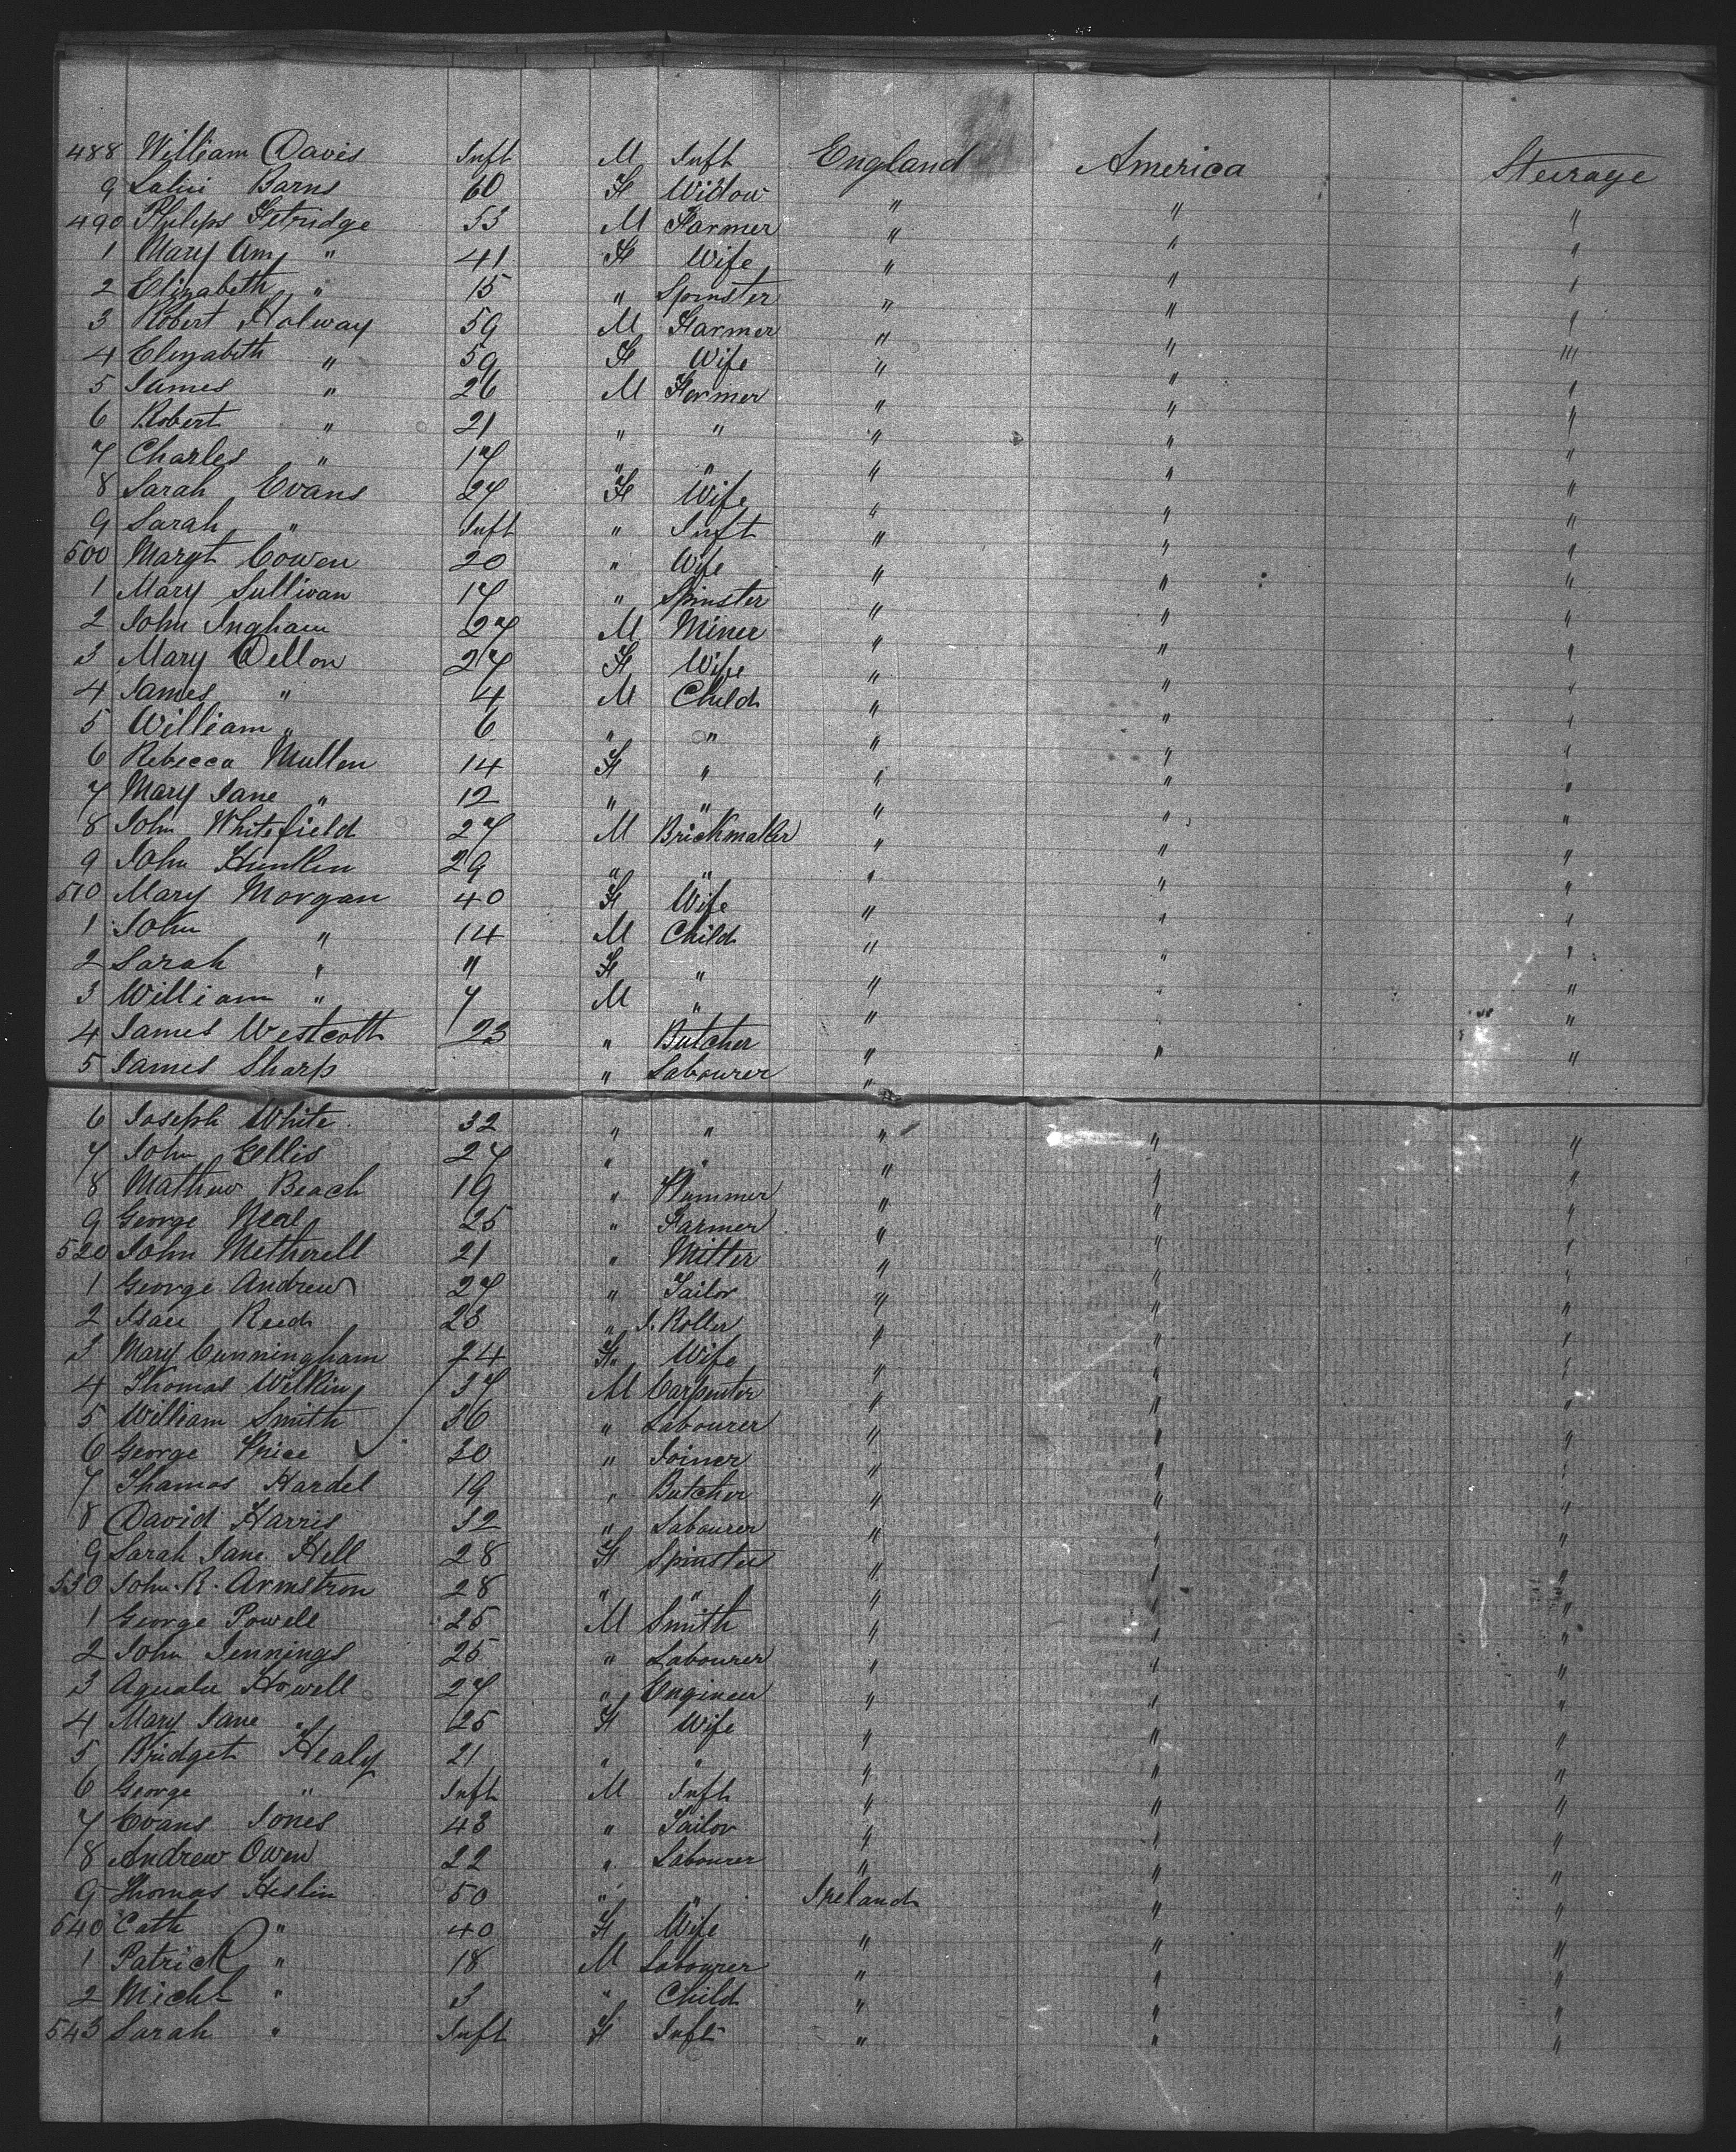 488 William Davis Inft M Inft England America Steerage
9 Barns 60 F Widow " " "
490 Philips Fetridge 53 M Farmer " " "
1 Mary Ann " 41 F Wife " " "
2 Elizabeth " 15 " Spinster " " "
3 Robert Holway 59 M Farmer " " "
4 Elizabeth " 59 F Wife " " "
5 James " 26 M Farmer " " "
6 Robert " 21 " " " " "
7 Charles " 17 " " " " "
8 Sarah Evans 27 F Wife " " "
9 Sarah " Inft " Inft " " "
500 Margt Cowen 20 " Wife " " "
1 Mary Sullivan 17 " Spinster " " "
2 John Ingham 27 M Miner " " "
3 Mary Dellon 27 F Wife " " "
4 James " 4 M Child " " "
5 William " 6 " " " " "
6 Rebecca Mullen 14 F " " " "
7 Mary Jane " 12 " " " " "
8 John Whitefield 27 M Brickmaker " " "
9 John 29 " " " " "
510 Mary Morgan 40 F Wife " " "
1 John " 14 M Child " " "
2 Sarah " " F " " " "
3 William " 7 M " " " "
4 James Westcott 23 " Butcher " " "
5 James Sharp " Labourer " "
6 Joseph White 32 " " " " "
7 John Ellis 27 " " " " "
8 Mathew Beach 19 " Plummer " " "
9 George Neal 25 " Farmer " " "
520 John Metherell 21 " " " "
1 George Andrew 27 " Tailor " " "
2 Isaac Reed 23 " I. Roller " " "
3 Mary Cunningham 24 F Wife " " "
4 Thomas Wilkin 37 M Carpenter " " "
5 William Smith 36 " Labourer " " "
6 George Price 30 " Joiner " " "
7 Thomas Hardel 19 " Butcher " " "
8 David Harris 32 " Labourer " " "
9 Sarah Jane Hell 28 F Spinster " " "
530 John. R. Armstron 28 " " " " "
1 George Powell 25 M Smith " " "
2 John Jennings 25 " Labourer " " "
3 Howell 27 " Engineer " " "
4 Mary Jane " 25 F Wife " " "
5 Bridget Healy 21 " " " " "
6 George " Inft M Inft " " "
7 Evans Jones 43 " Tailor " " "
8 Andrew Owen 22 " Labourer " " "
9 Thomas Heslin 50 " " Ireland " "
540 Cath " 40 F Wife " " "
1 Patrick " 18 M Labourer " " "
2 Michl " 3 " Child " " "
543 Sarah " Inft F Inft " " "